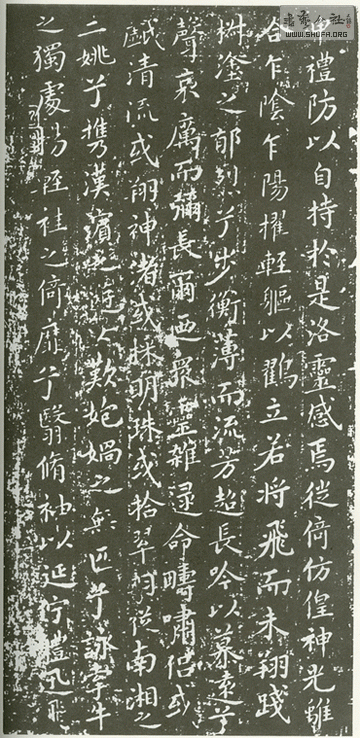 申禮防以自持於是洛靈感焉徙倚仿偟神光離
合乍陰乍陽擢輕軀以鶴立若將飛而未翔踐
椒塗之郁烈兮步衡薄而流芳超長吟以慕遠兮
聲哀厲而彌長爾迺眾靈雜遝命疇嘯侣或
戲清流或翔神渚或採明珠或拾翠羽從南湘之
二姚兮攜漢濱之遊女歎匏媧之無匹兮詠牽牛
之獨處揚輕袿之倚靡兮翳脩袖以延佇體迅飛
WWW.SHUFA.ORG